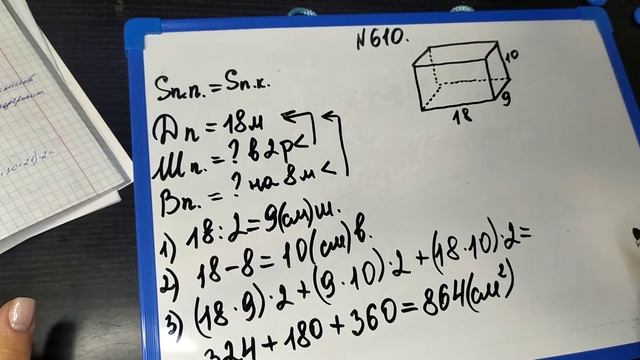 №610.
Sп.п. = Sп.к.
10
9
18
Дп = 18м
Шп. = ? в 2р<
Вп. = ? на 8м<
1) 18:2=9(см)ш.
2) 18-8=10(см)в.
3) (18·9)·2+(9·10)·2+(18·10)·2=
324+180+360=864(см²)